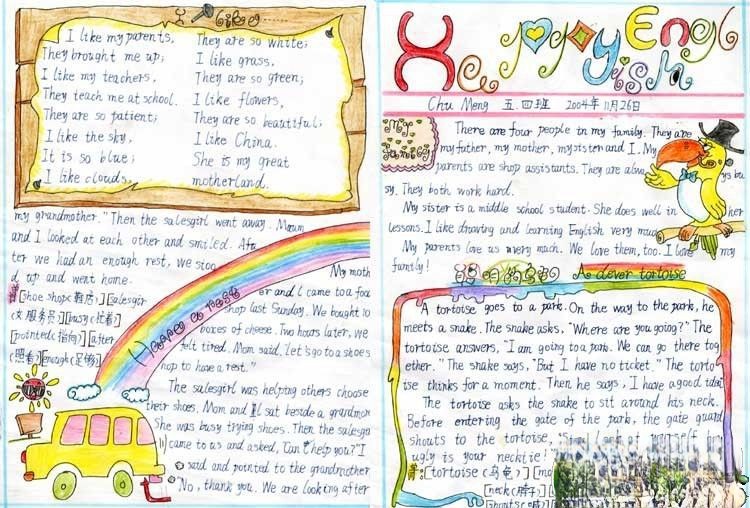 I like my parents,
They brought me up;
I like my teachers,
They teach me at school.
They are so patient;
I like the sky,
It is so blue;
I like clouds,
They are so white;
I like grass,
They are so green;
I like flowers,
They are so beautiful;
I like China.
She is my great
motherland.
my grandmother." Then the salesgirl went away. Mum
and I looked at each other and smiled. Af
ter we had an enough rest, we stoo
d up and went home.
[shoe shop(鞋店)][salesgir
(女服务员)][busy(忙着)
[pointed(指向)][after
(照看)][enough(足够)]
Have a rest
My moth
er and I came to a foo
shop last Sunday. We bought 10
boxes of cheese. Two hours later, we
felt tired. Mom said, "Let's go to a shoes
hop to have a rest."
The salesgirl was helping others choose
their shoes. Mom and I sat beside a grandmom
She was busy trying shoes. Then the salesgi
came to us and asked, "Can I help you?" I
said and pointed to the grandmother
"No, thank you. We are looking after
Happy English
Chu Meng 五四班 2004年11月26日
There are four people in my family. They are
my father, my mother, my sister and I. My
parents are shop assistants. They are alway s bu
sy. They both work hard.
My sister is a middle school student. She does well in her
lessons. I like drawing and learning English very muc
My parents love us very much. We love them, too. I love my
family!
聪明的乌龟 A clever tortoise
A tortoise goes to a park. On the way to the park, he
meets a snake. The snake asks, "Where are you going?" The
tortoise answers, "I am going to a park. We can go there tog
ether." The snake says, "But I have no ticket." The torto
ise thinks for a moment. Then he says, I have a good idea!
The tortoise asks the snake to sit around his neck.
Before entering the gate of the park, the gate guard
shouts to the tortoise,
ugly is your necktie!
[tortoise(乌龟)]
[neck(脖子)]